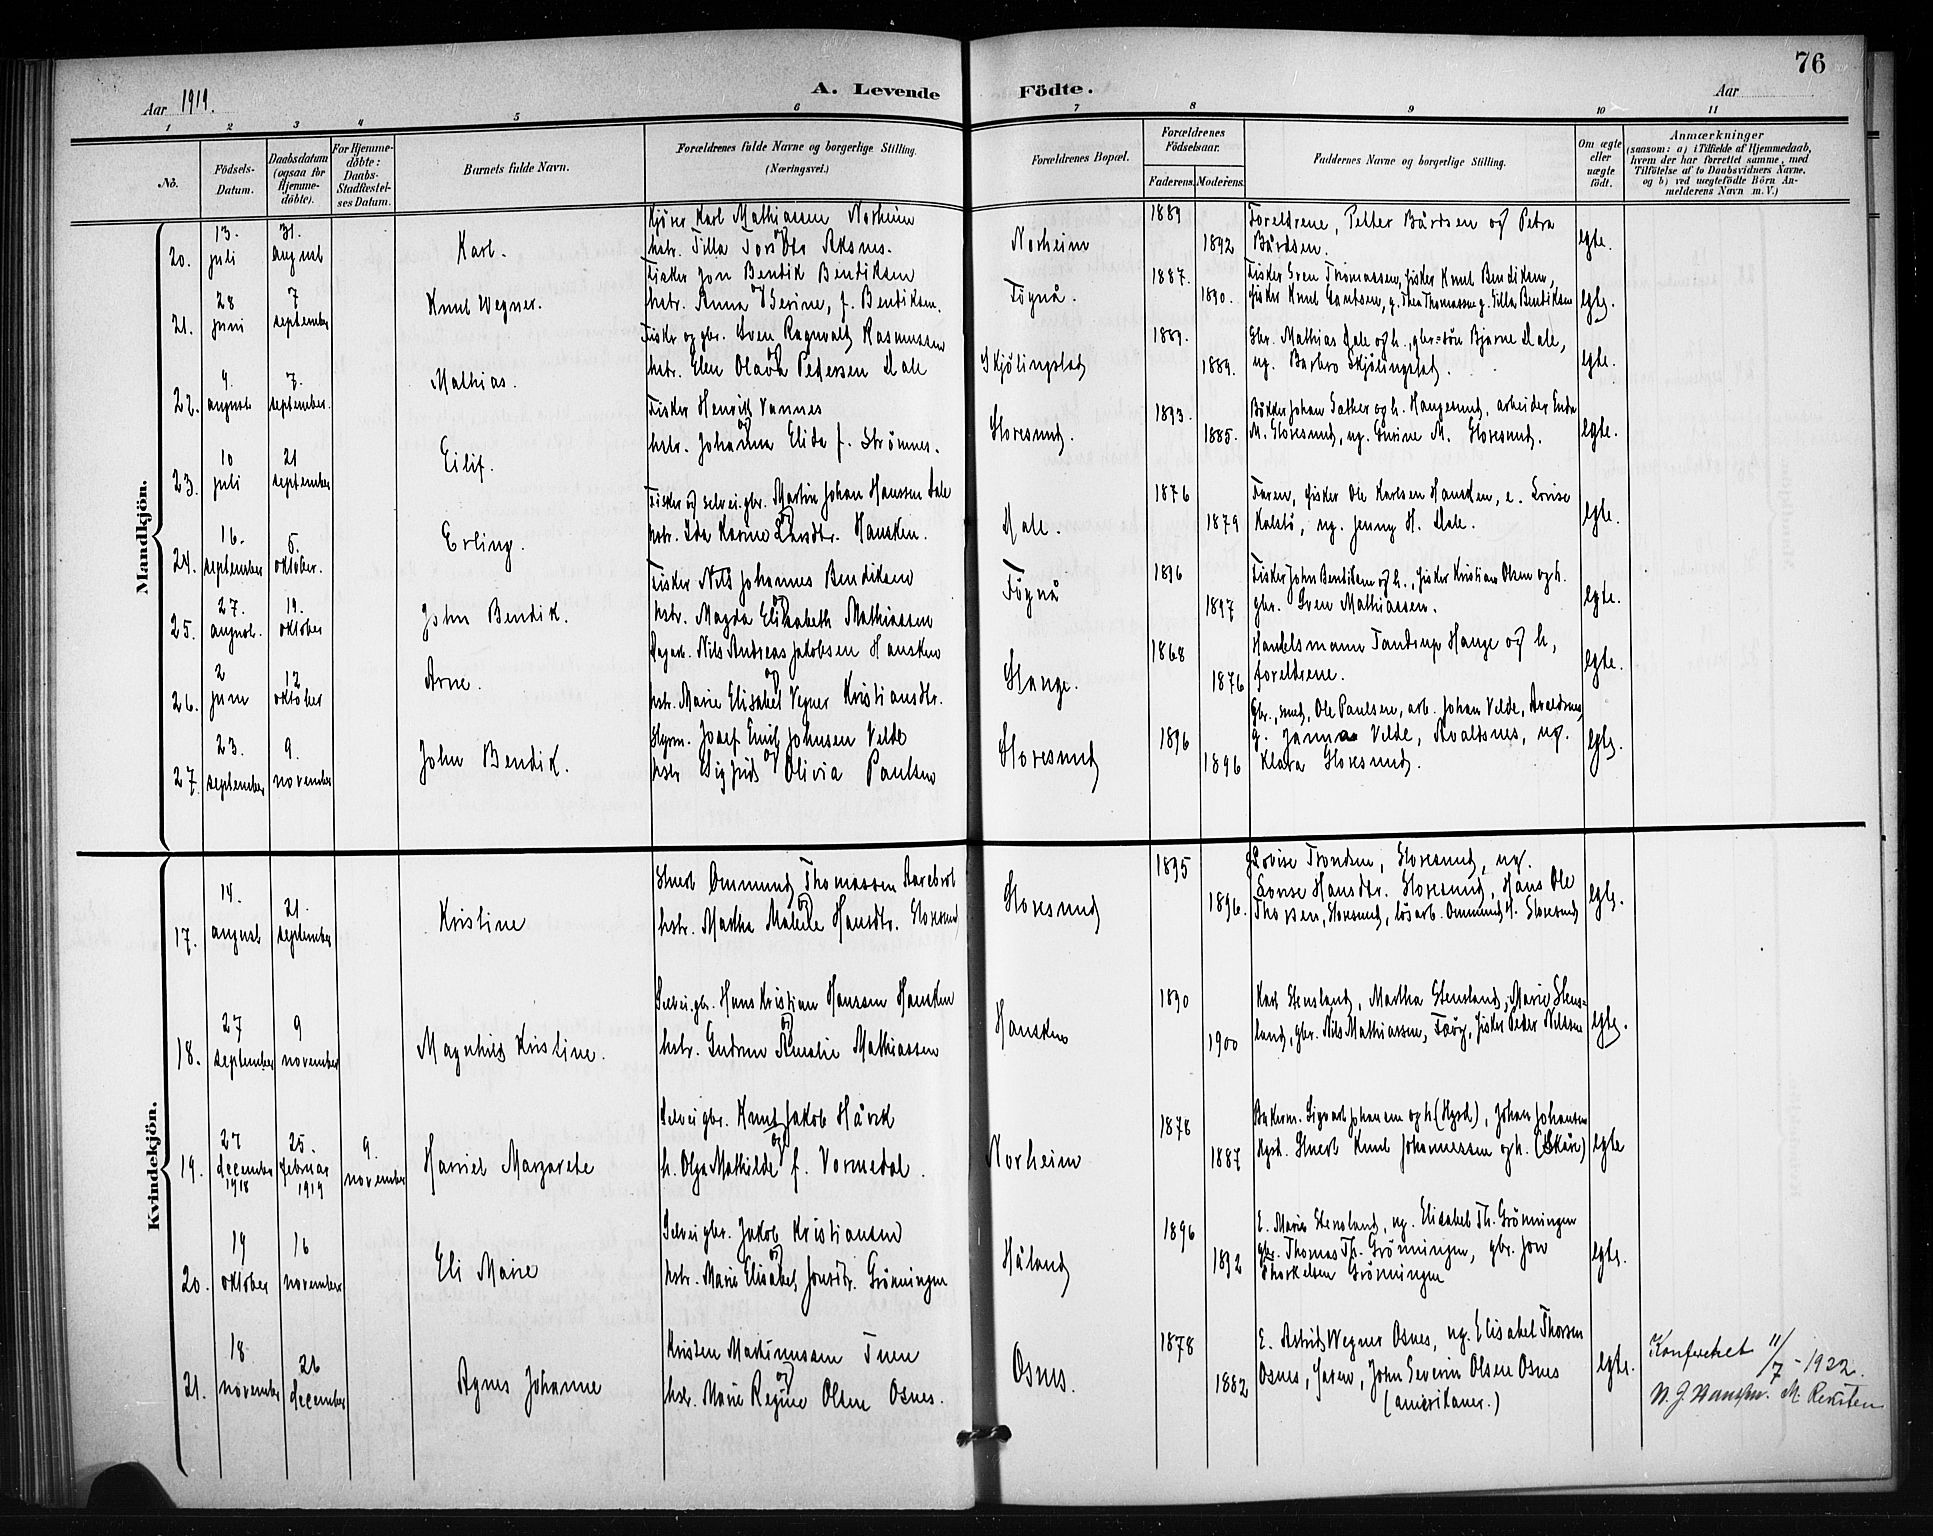 76
Aar 1919.
A. Levende Födte.
Aar
1 2 3 4 5 6 7 8 9 10 11
No.
Födsels-Datum.
Daabsdatum (ogsaa for Hjemme-döbte).
For Hjemme-döbte: Daabs-Stadfæstel-ses Datum.
Barnets fulde Navn.
Forældrenes fulde Navne og borgerlige Stilling.
(Næringsvei.)
Forældrenes Bopæl.
Forældrenes Födselsaar.
Faderens. Moderens.
Faddernes Navne og borgerlige Stilling.
Om ægte eller uægte födt.
Anmærkninger
(saasom: a) i Tilfælde af Hjemmedaab,
hvem der har forrettet samme, med
Tilföielse af to Daabsvidners Navne,
og b) ved uægtefödte Börn An-
melderens Navn m. V.)
Mandkjön.
20. 13. juli 31. august Karl.
Karl Mathiassen Norheim
og
hstr. Tilla Aksnes.
Norheim 1889 1892
Foreldrene, Petter Bårdsen og Petra
Bårdsen. egte.
21. 28 juni 7 september Knut Wegner.
Fisker Jon Bendik Bendiksen
og
hstr. Anna Serine, f. Bendiksen.
1887. 1890.
Fisker Sven Thomassen, fisker Knut Bendiksen,
fisker Knut g. Thea Thomassen g. Tilla Bendiksen egte.
22. 4. august 7. september. Mathias.
Fisker og gbr. Sven Ragnvald Rasmussen
og
hstr. Elen Olava Petersen Dale
Skjölingstad 1889. 1889.
Gbr. Mathias Dale og h., gbr=sön Bjarne Dale,
ug. Barbro Skjölingstad. egte.
23. 10 juli 21 september Eilif.
Fisker Henrik Vannes
og
hstr. Johanna Elida f. Strömnes.
Storesund. 1893. 1885.
Bökker Johan Sæther og h. Haugesund, arbeider
M. Storesund, ug. M. Storesund. egte.
24. 16. september 5. oktober. Erling.
Fisker og selvei.gbr. Martin Johan Hanssen Dale
og
hstr. Ida Karine Hansken.
Dale. 1876 1879
Faren, fisker Ole Karlsen Hansken, e. Lovise
Kalstö, ug. Jenny H. Dale. egte.
25. 27. august. 19. oktober John Bendik.
Fisker Nils Johannes Bendiksen
og
hstr. Magda Elisabeth Mathiassen
1896 1897
Fisker John Bendiksen og h., fisker Kristian Olsen og h.
gbr. Sven Mathiassen. egte.
26. 2 juni 12 oktober Arne.
Nils Andreas Jakobsen Hansken
og
hstr. Marie Elisabet Vegner Kristiansdtr.
Stange. 1868 1876
Handelsmann Tandrup Hauge og h,
foreldrene. egte.
27. 23. september 9. november John Bendik.
Styrm. Josef Emil Johnsen Velde
og
hstr Sigfrid Olivia Paulsen
Storesund 1896 1896
Gbr., smed, Ole Paulsen, arb. Johan Velde, Avaldsnes
g. Janna Velde, Avaldsnes, ug.
Klara Storesund. egte.
Kvindekjön.
17. 14. august 21. september Kristine
Ommund Thomassen
og
hstr. Martha Malene Hansdtr. Storesund
Storesund 1895 1896.
g Lovise Trondsen, Storesund, ug.
Lovise Hansdtr. Storesund, Hans Ole
Storesund, lösarb. Ommund H. Storesund egte.
18. 27 september 9 november Magnhild Kristine.
Selvei gbr. Hans Kristian Hanssen Hansken
og
hstr. Gudrun Amalie Mathiassen
Hansken 1890 1900
Karl Stensland, Martha Stensland, Marie Stens=
land, gbr. Nils Mathiassen, fisker Peder Nilssen egte.
19. 27 december 1918 25. februar 1919 9. november Harriet Margarete
Selvei gbr. Knut Jakob Håvik
og
h. Olga Mathilde f. Vormedal.
Norheim 1878 1887
Sigvart Johansen og h (Hgsd), Johan Johansen
Hgsd. Knut Johannessen og h. egte
20. 19 oktober 16 november Eli Marie
Selvei gbr. Jakob Kristiansen
og
hstr. Marie Elisabet Jonsdtr. Grönningen
Håland 1896 1892
E. Marie Stensland, ug. Elisabet Th. Grönningen
gbr. Thomas Th. Grönningen, gbr. Jon
Thorkelsen Grönningen egte.
21. 18 november 26 december Agnes Johanne
Kristen Martinussen Tuen
og
hstr. Marie Regine Olsen Osnes.
Osnes. 1878 1882
E. Astrid Wegner Osnes, ug. Elisabet Thorsen
Osnes, faren, John Severin Olsen Osnes
(amerikaner.) egte.
Konfereret 11/7 - 1922.
N. J. Hansen. M. Reksten